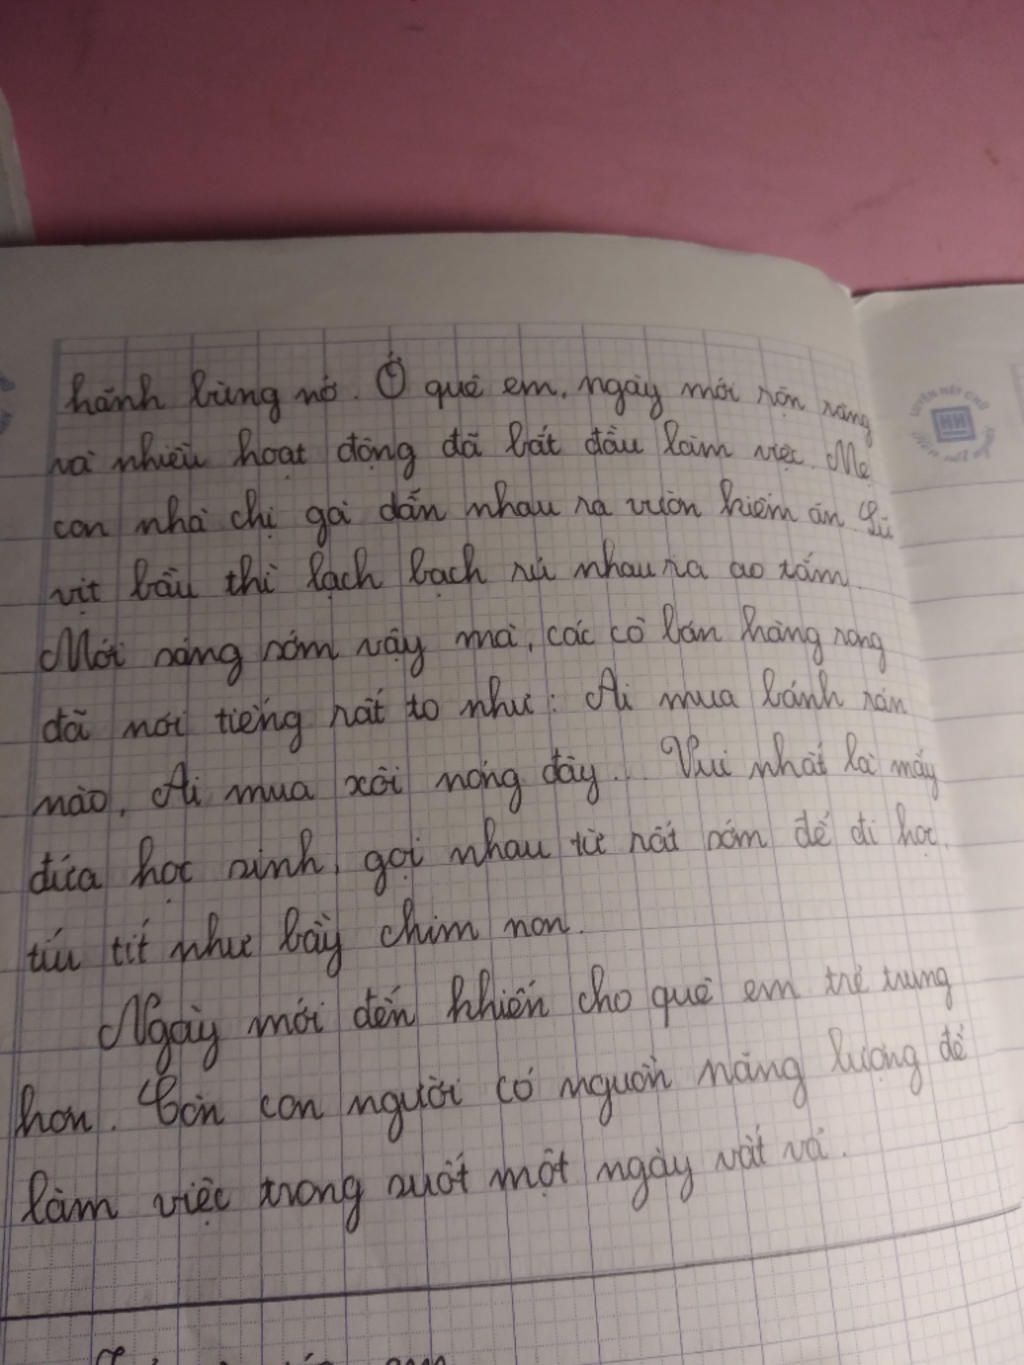 hãnh bừng nở. Ở quê em, ngày mới rộn ràng
và nhiều hoạt động đã bắt đầu làm việc. Mẹ
con nhà chị gà dẫn nhau ra vườn kiếm ăn. Lũ
vịt bầu thì lạch bạch rủ nhau ra ao tắm.
Mới sáng sớm vậy mà, các cô bán hàng rong
đã nói tiếng rất to như: Ai mua bánh rán
nào, Ai mua xôi nóng đây... Vui nhất là mấy
đứa học sinh, gọi nhau từ rất sớm để đi học,
tíu tít như bầy chim non.
Ngày mới đến khiến cho quê em trẻ trung
hơn. Còn con người có nguồn năng lượng để
làm việc trong suốt một ngày vất vả.